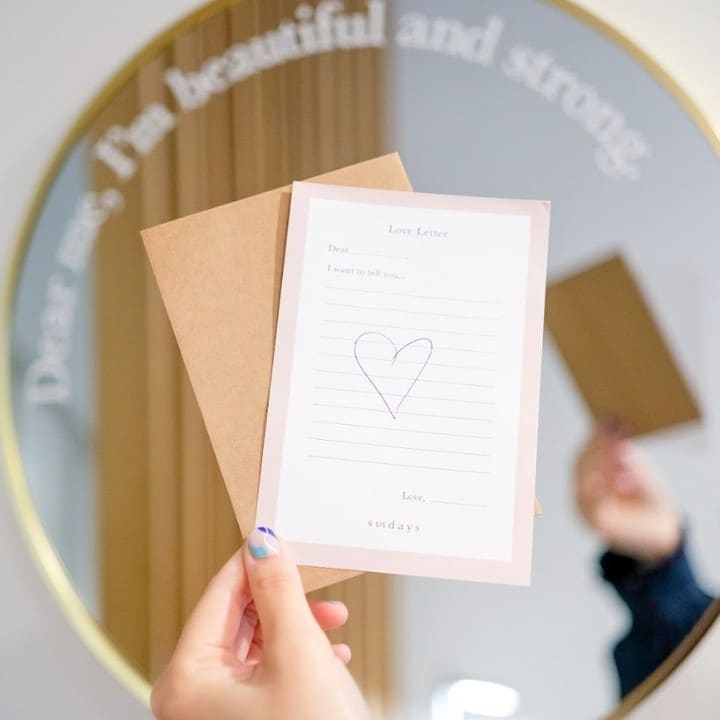 Dear me, I'm beautiful and strong.
Love Letter
Dear
I want to tell you...
Love,
sundays